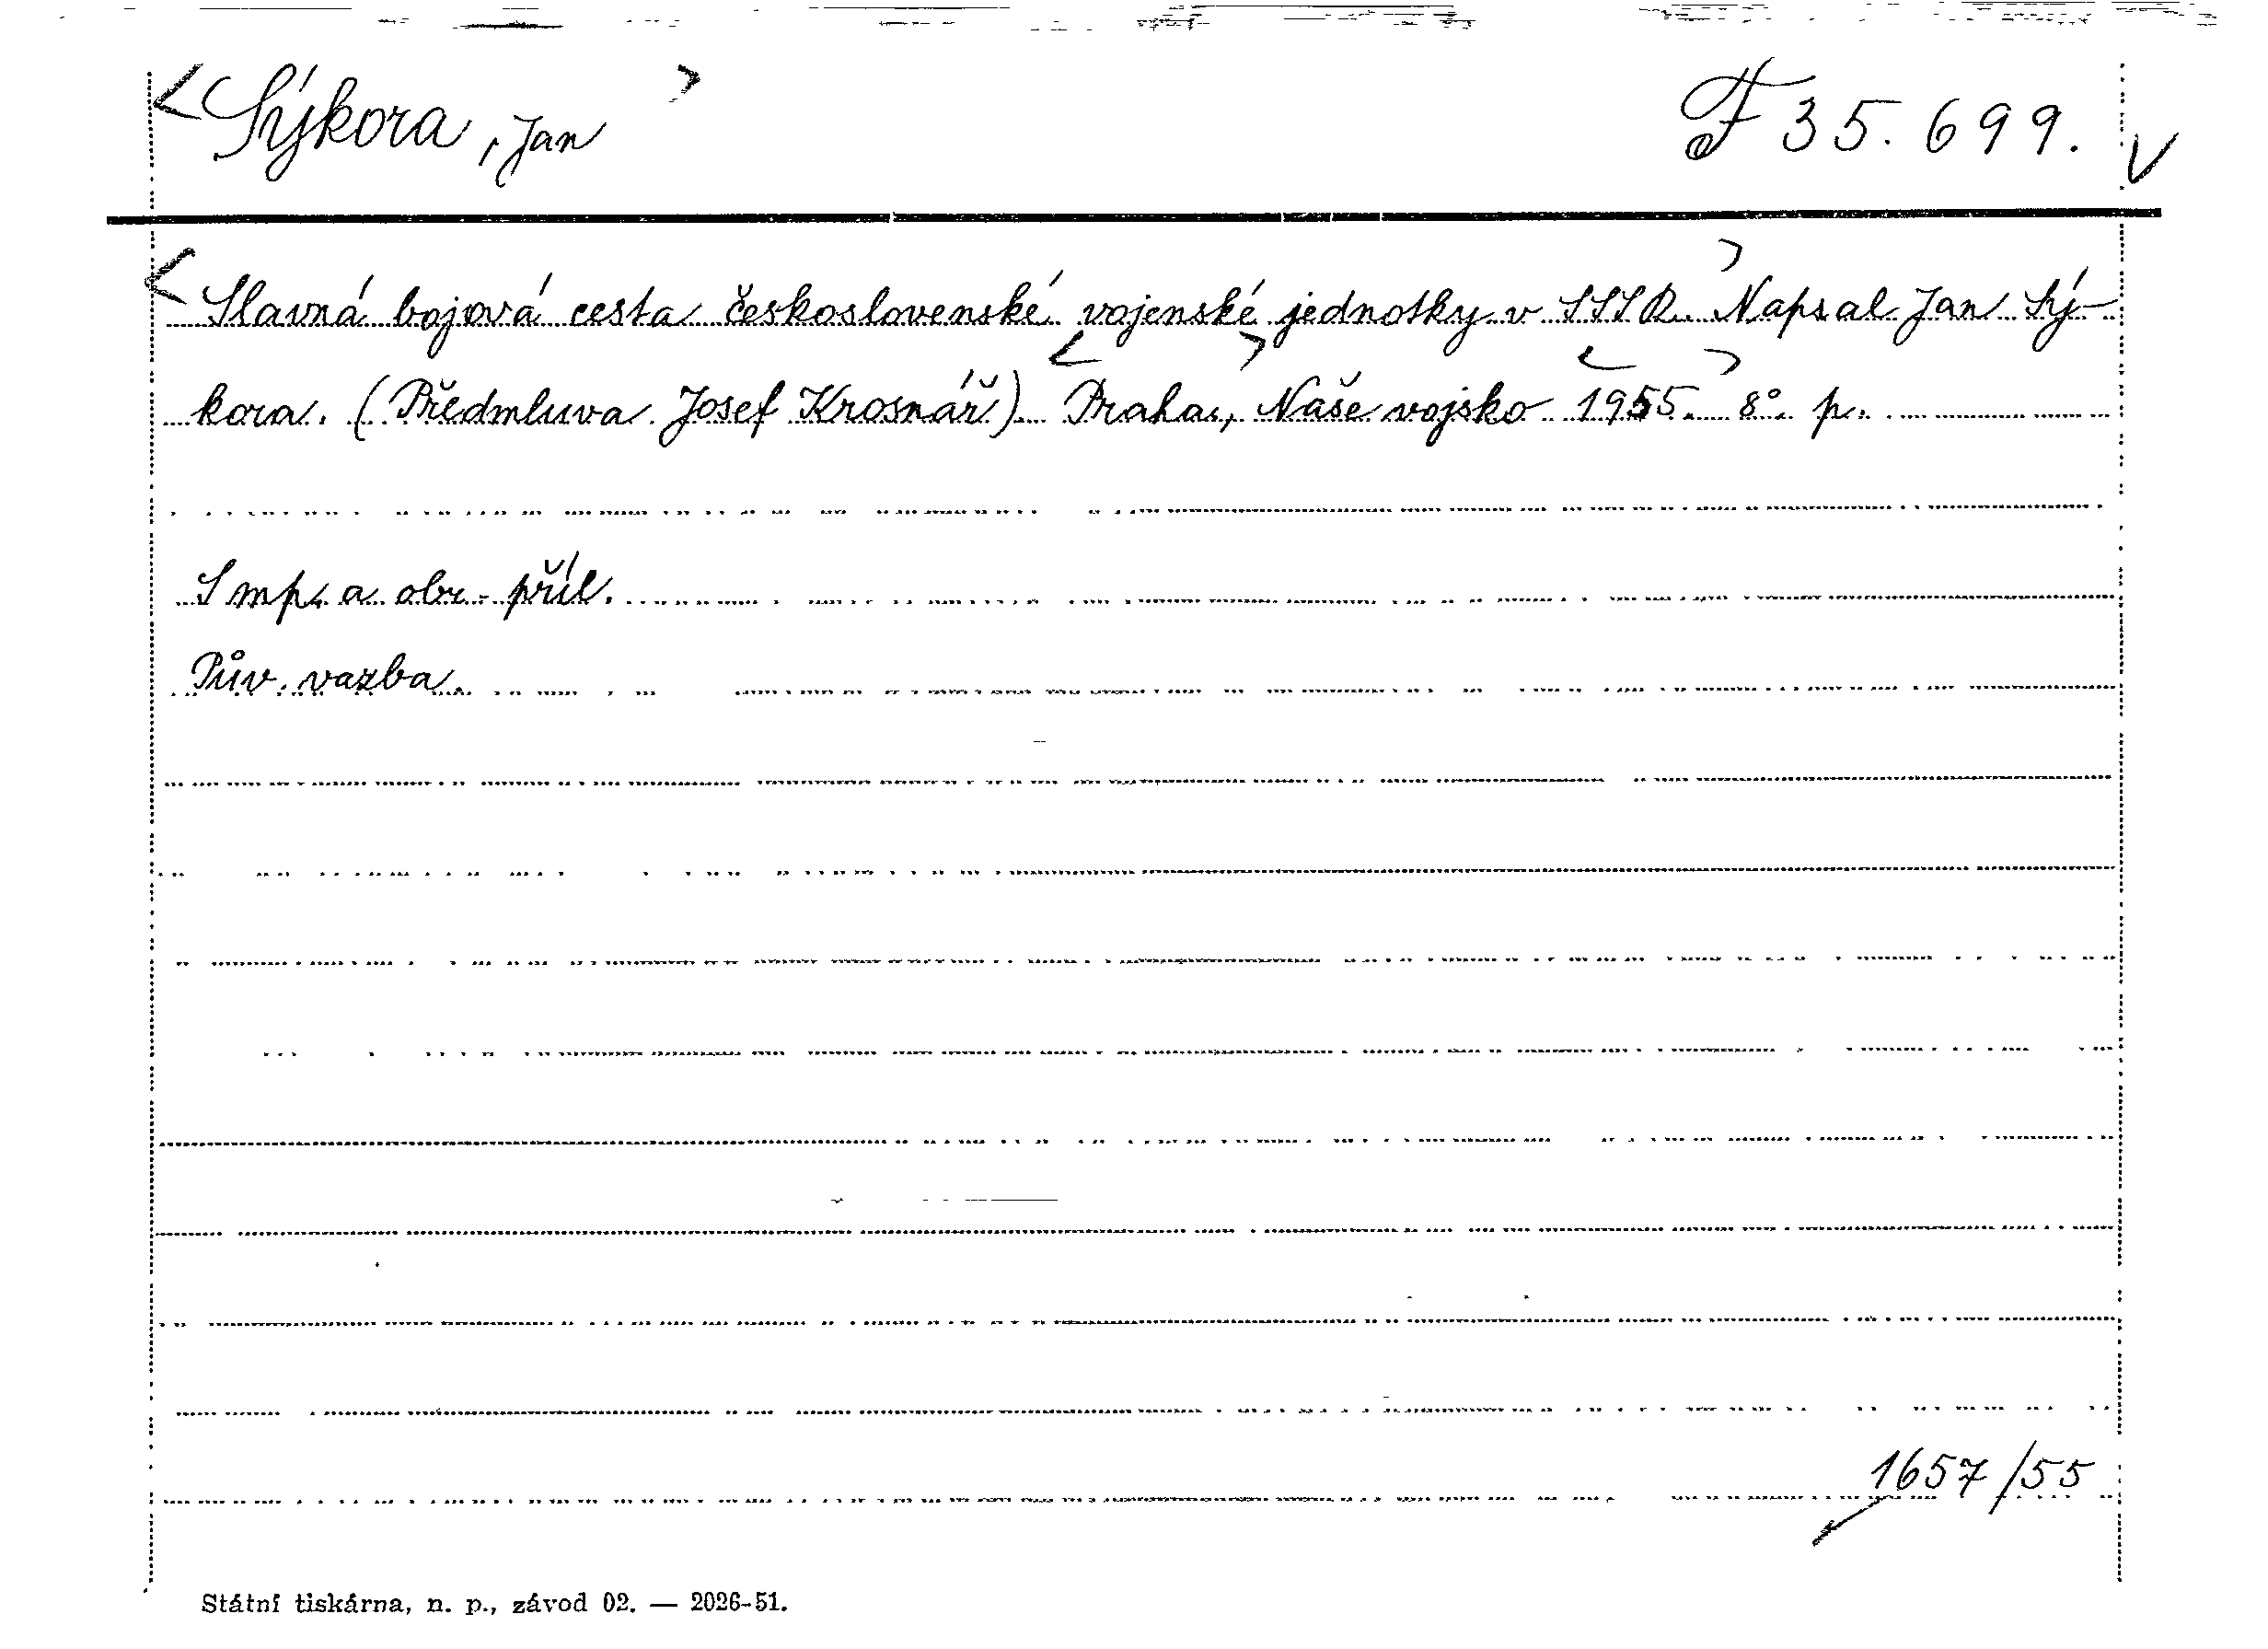 <Sýkora, Jan> F 35.699. V
<Slavná bojová cesta československé vojenské jednotky v SSSR.> Napsal Jan Sý-
kora. (Předmluva Josef Krosnář) <Praha,> Naše vojsko <1955.> 8°. p.
S mp. a obr. příl.
Pův. vazba.
1657/55
Státní tiskárna, n. p., závod 02. — 2026-51.